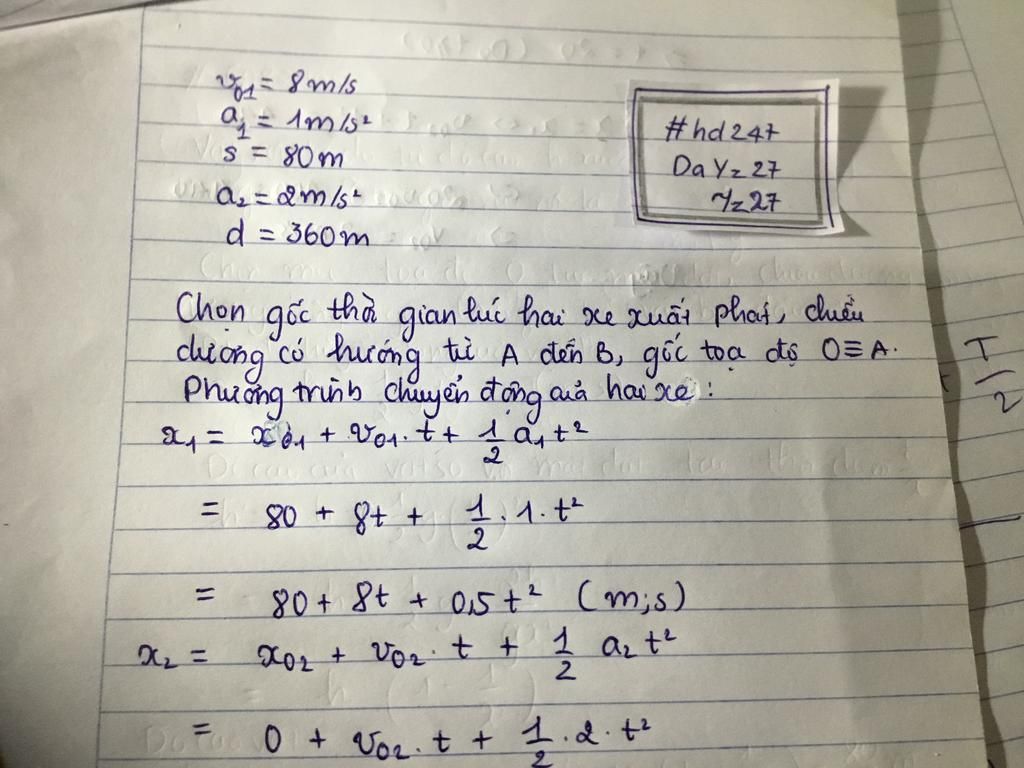 v₀₁ = 8m/s
a₁ = 1m/s²
s = 80m
a₂ = 2m/s²
d = 360m
#hd247
DaY z 27
Yz 27
Chọn gốc thờ gian lúc hai xe xuất phát, chiều
dương có hướng từ A đến B, gốc tọa độ O ≡ A.
Phương trình chuyển động của hai xe :
x₁ = x₀₁ + v₀₁ . t + 1/2 a₁t²
= 80 + 8t + 1/2 . 1 . t²
= 80 + 8t + 0,5t² (m;s)
x₂ = x₀₂ + v₀₂ . t + 1/2 a₂ t²
= 0 + v₀₂ . t + 1/2 . 2 . t²
T/2